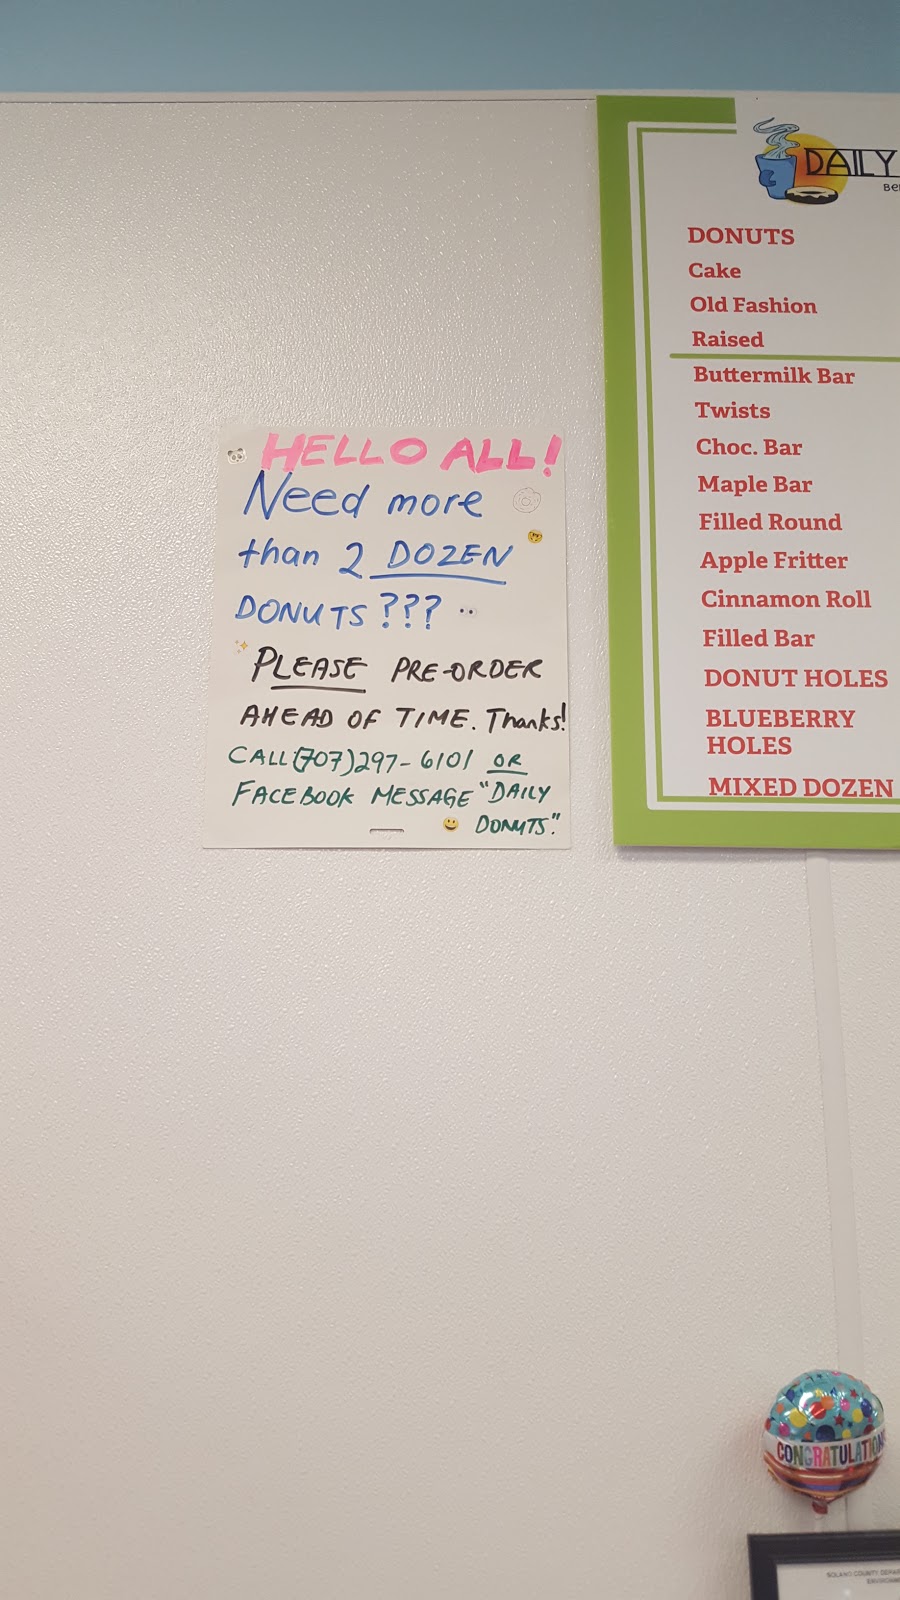 HELLO ALL!
Need more
than 2 DOZEN
DONUTS???
PLEASE PRE-ORDER
AHEAD OF TIME. Thanks!
CALL (707)297-6101 OR
FACEBOOK MESSAGE "DAILY
DONUTS".
DAILY
DONUTS
Cake
Old Fashion
Raised
Buttermilk Bar
Twists
Choc. Bar
Maple Bar
Filled Round
Apple Fritter
Cinnamon Roll
Filled Bar
DONUT HOLES
BLUEBERRY
HOLES
MIXED DOZEN
SOLANO COUNTY